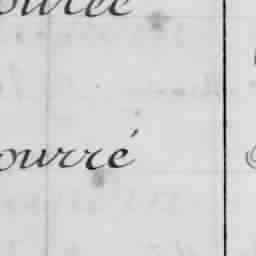 ourée
ourré